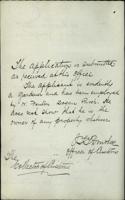 The application is submitted
as received at this office
The applicant is evidently
a Gardener and has been employed
by Mr
River. He
does not show that he is the
owner of any property whatever
Officer of Customs
The
Collector of Customs